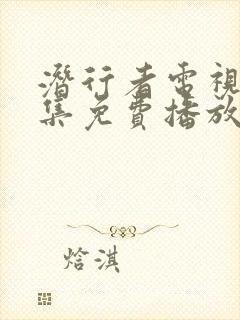 潛行者電視
集免費播放
焓淇